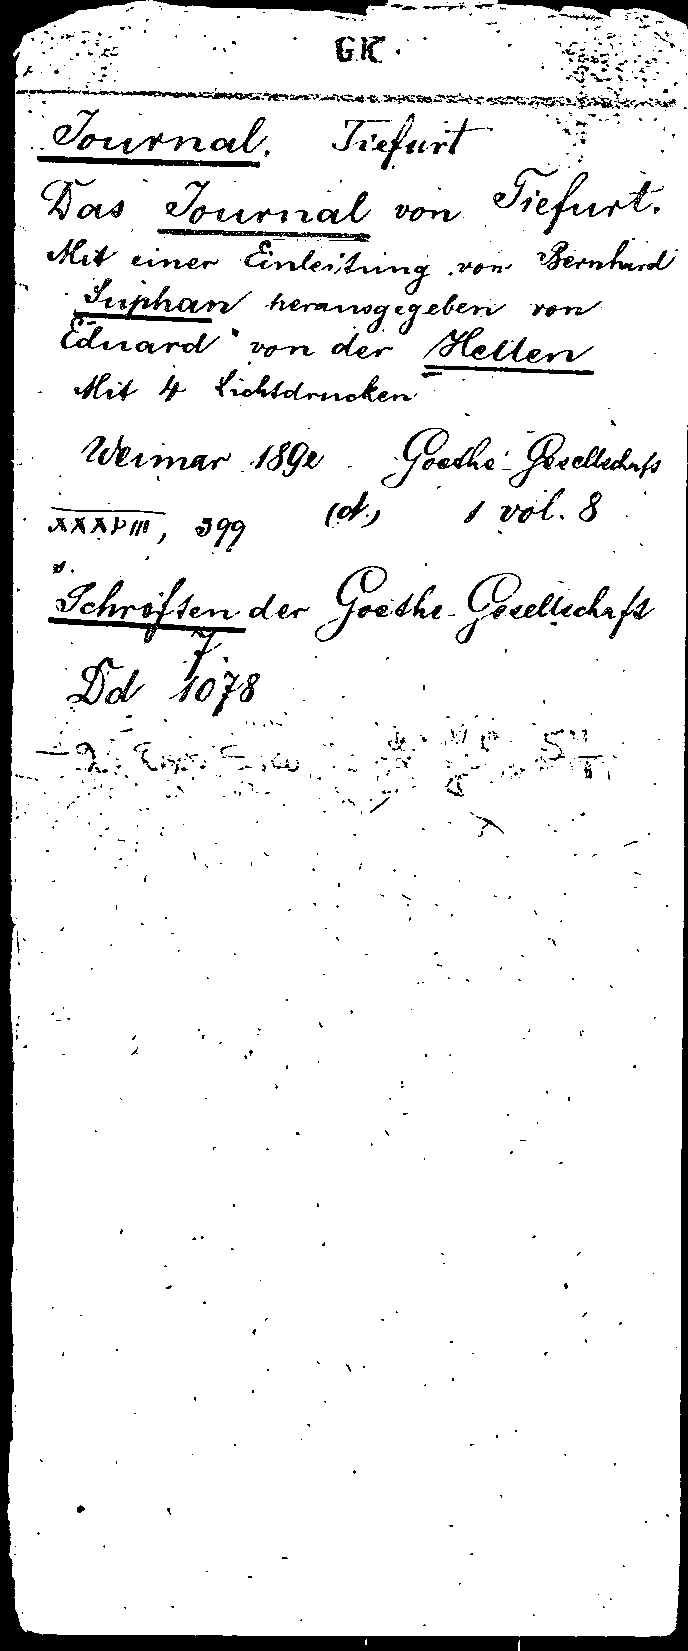 GK.
Journal. Tiefurt
Das Journal von Tiefurt.
Mit einer Einleitung von Bernhard
Suphan herausgegeben von
Eduard von der Hellen
Mit 4 Lichtdrucken
Weimar 1892 Goethe-Gesellschaft
XXXVIII, 399 (d.) 1 vol. 8
s.
Schriften der Goethe-Gesellschaft
7.
Dd 1078